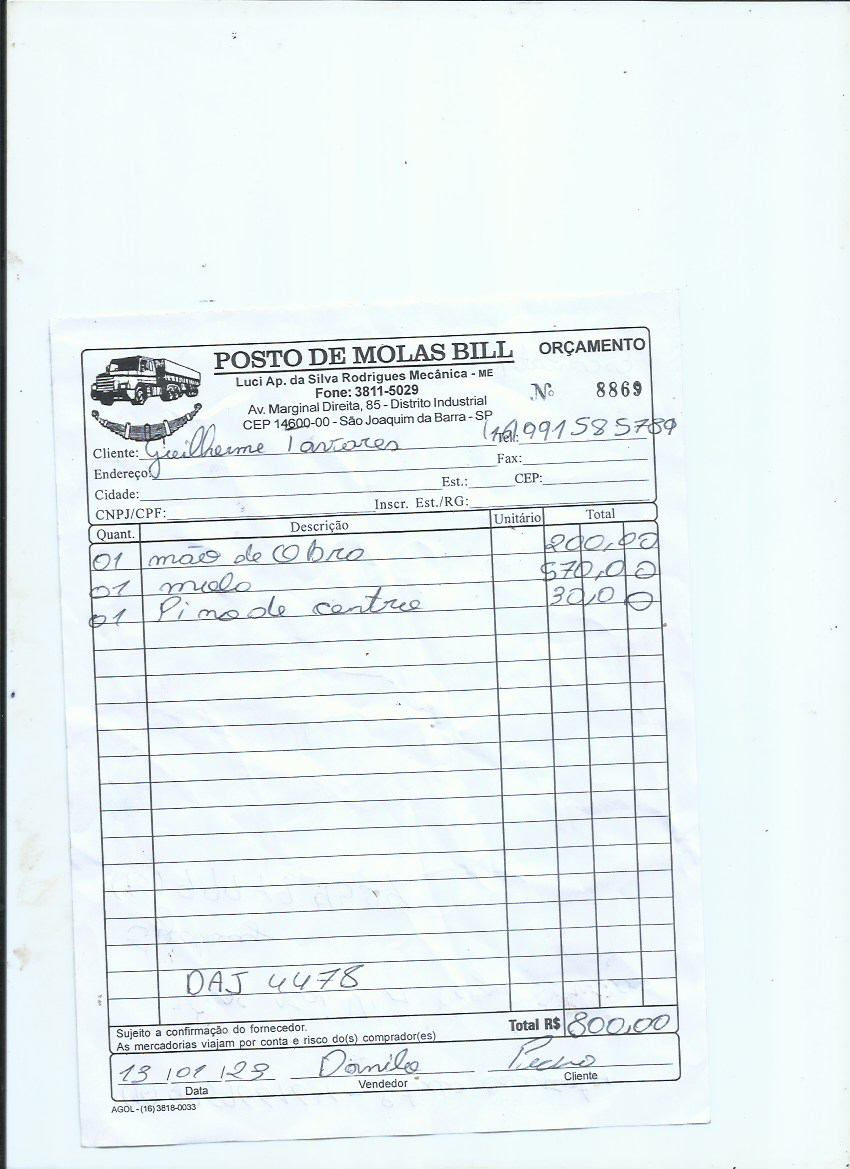 POSTO DE MOLAS BILL ORÇAMENTO
Luci Ap. da Silva Rodrigues Mecânica - ME
Fone: 3811-5029
Nº 8869
Av. Marginal Direita, 85 - Distrito Industrial
CEP 14600-00 - São Joaquim da Barra - SP
Cliente: Guilherme Tavares Tel.: (16) 991585789
Endereço: Fax:
Cidade: Est.: CEP:
CNPJ/CPF: Inscr. Est./RG:
Quant. Descrição Unitário Total
01 mão de Obra 200,00
01 570,00
01 Pino de centro 30,00
DAJ 4478
Sujeito a confirmação do fornecedor.
As mercadorias viajam por conta e risco do(s) comprador(es)
Total R$ 800,00
13 / 01 / 23 Danilo Pedro
Data Vendedor Cliente
AGOL - (16) 3818-0033